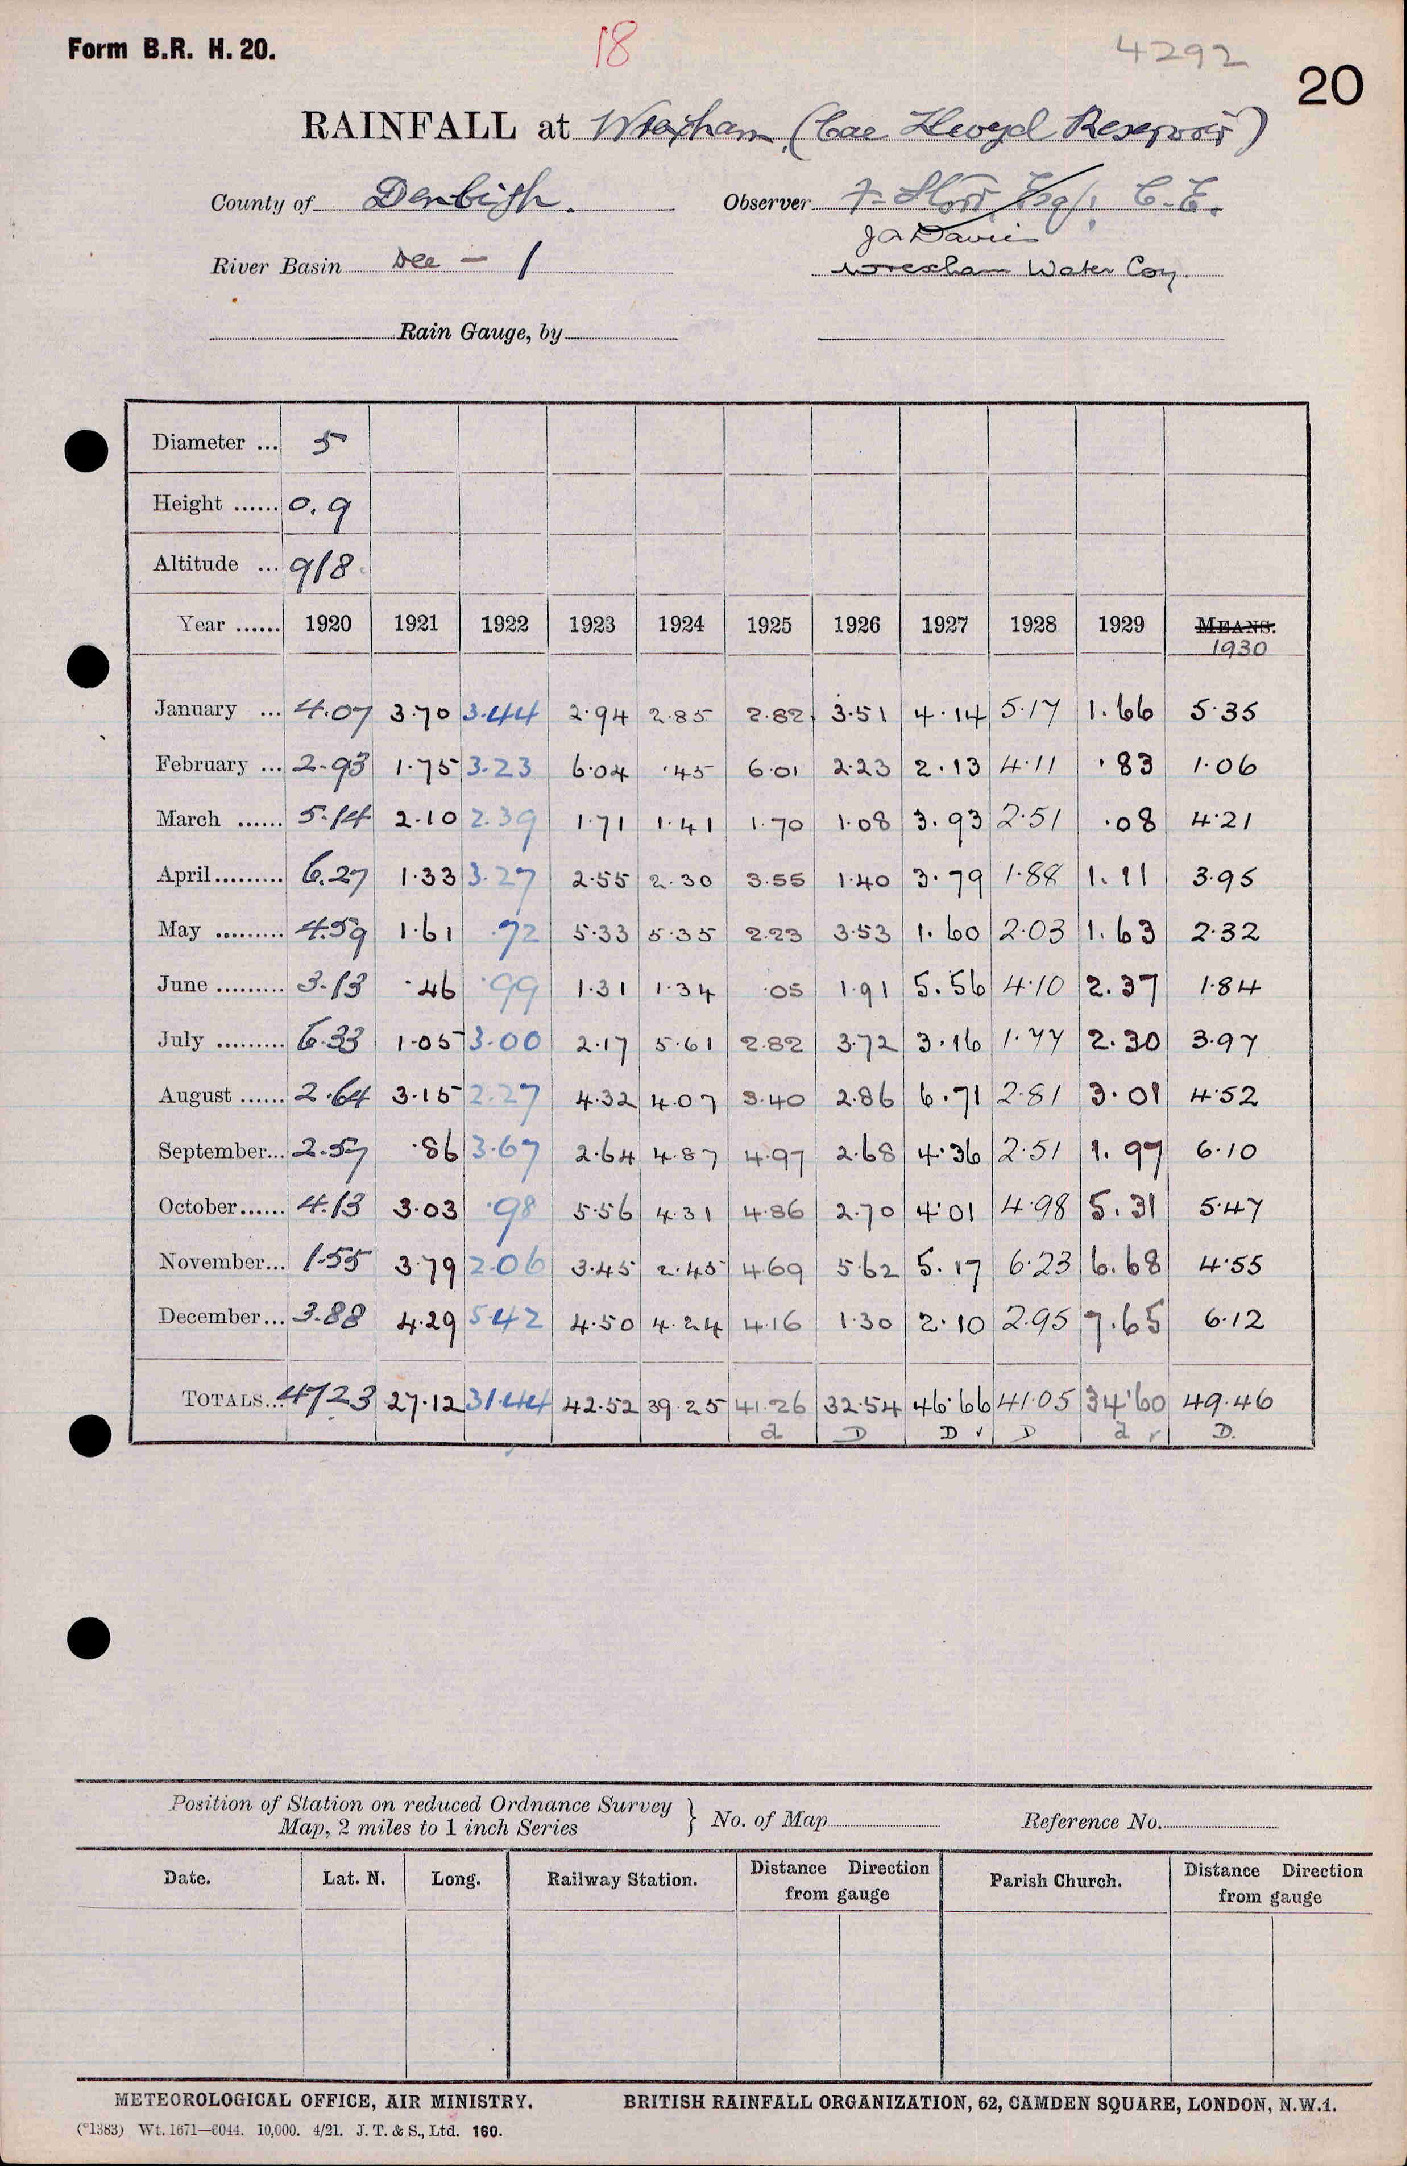 Form B.R. H. 20.
18
4292
20
RAINFALL at Wrexham, (Cae Llwyd Reservoir)
County of Denbigh. Observer F. Storr Esq; C.E.
J A Davies
River Basin Dee - 1 Wrexham Water Coy.
Rain Gauge, by
Diameter ... 5
Height ...... 0.9
Altitude ... 918
Year ...... 1920 1921 1922 1923 1924 1925 1926 1927 1928 1929 MEANS.
1930
January ... 4.07 3.70 3.44 2.94 2.85 2.82 3.51 4.14 5.17 1.66 5.35
February ... 2.93 1.75 3.23 6.04 .45 6.01 2.23 2.13 4.11 .83 1.06
March ...... 5.14 2.10 2.39 1.71 1.41 1.70 1.08 3.93 2.51 .08 4.21
April ......... 6.27 1.33 3.27 2.55 2.30 3.55 1.40 3.79 1.88 1.11 3.95
May ......... 4.59 1.61 .72 5.33 5.35 2.23 3.53 1.60 2.03 1.63 2.32
June ......... 3.13 .46 .99 1.31 1.34 .05 1.91 5.56 4.10 2.37 1.84
July ......... 6.33 1.05 3.00 2.17 5.61 2.82 3.72 3.16 1.77 2.30 3.97
August ...... 2.64 3.15 2.27 4.32 4.07 3.40 2.86 6.71 2.81 3.01 4.52
September... 2.57 .86 3.67 2.64 4.87 4.97 2.68 4.36 2.51 1.97 6.10
October ...... 4.13 3.03 .98 5.56 4.31 4.86 2.70 4.01 4.98 5.31 5.47
November... 1.55 3.79 2.06 3.45 2.45 4.69 5.62 5.17 6.23 6.68 4.55
December... 3.88 4.29 5.42 4.50 4.24 4.16 1.30 2.10 2.95 7.65 6.12
TOTALS... 47.23 27.12 31.44 42.52 39.25 41.26 32.54 46.66 41.05 34.60 49.46
d D D ✓ D d ✓ D.
Position of Station on reduced Ordnance Survey
Map, 2 miles to 1 inch Series } No. of Map Reference No.
Date. Lat. N. Long. Railway Station. Distance Direction from gauge Parish Church. Distance Direction from gauge
METEOROLOGICAL OFFICE, AIR MINISTRY. BRITISH RAINFALL ORGANIZATION, 62, CAMDEN SQUARE, LONDON, N.W.1.
(*1383) Wt. 1671—6044. 10,000. 4/21. J. T. & S., Ltd. 160.